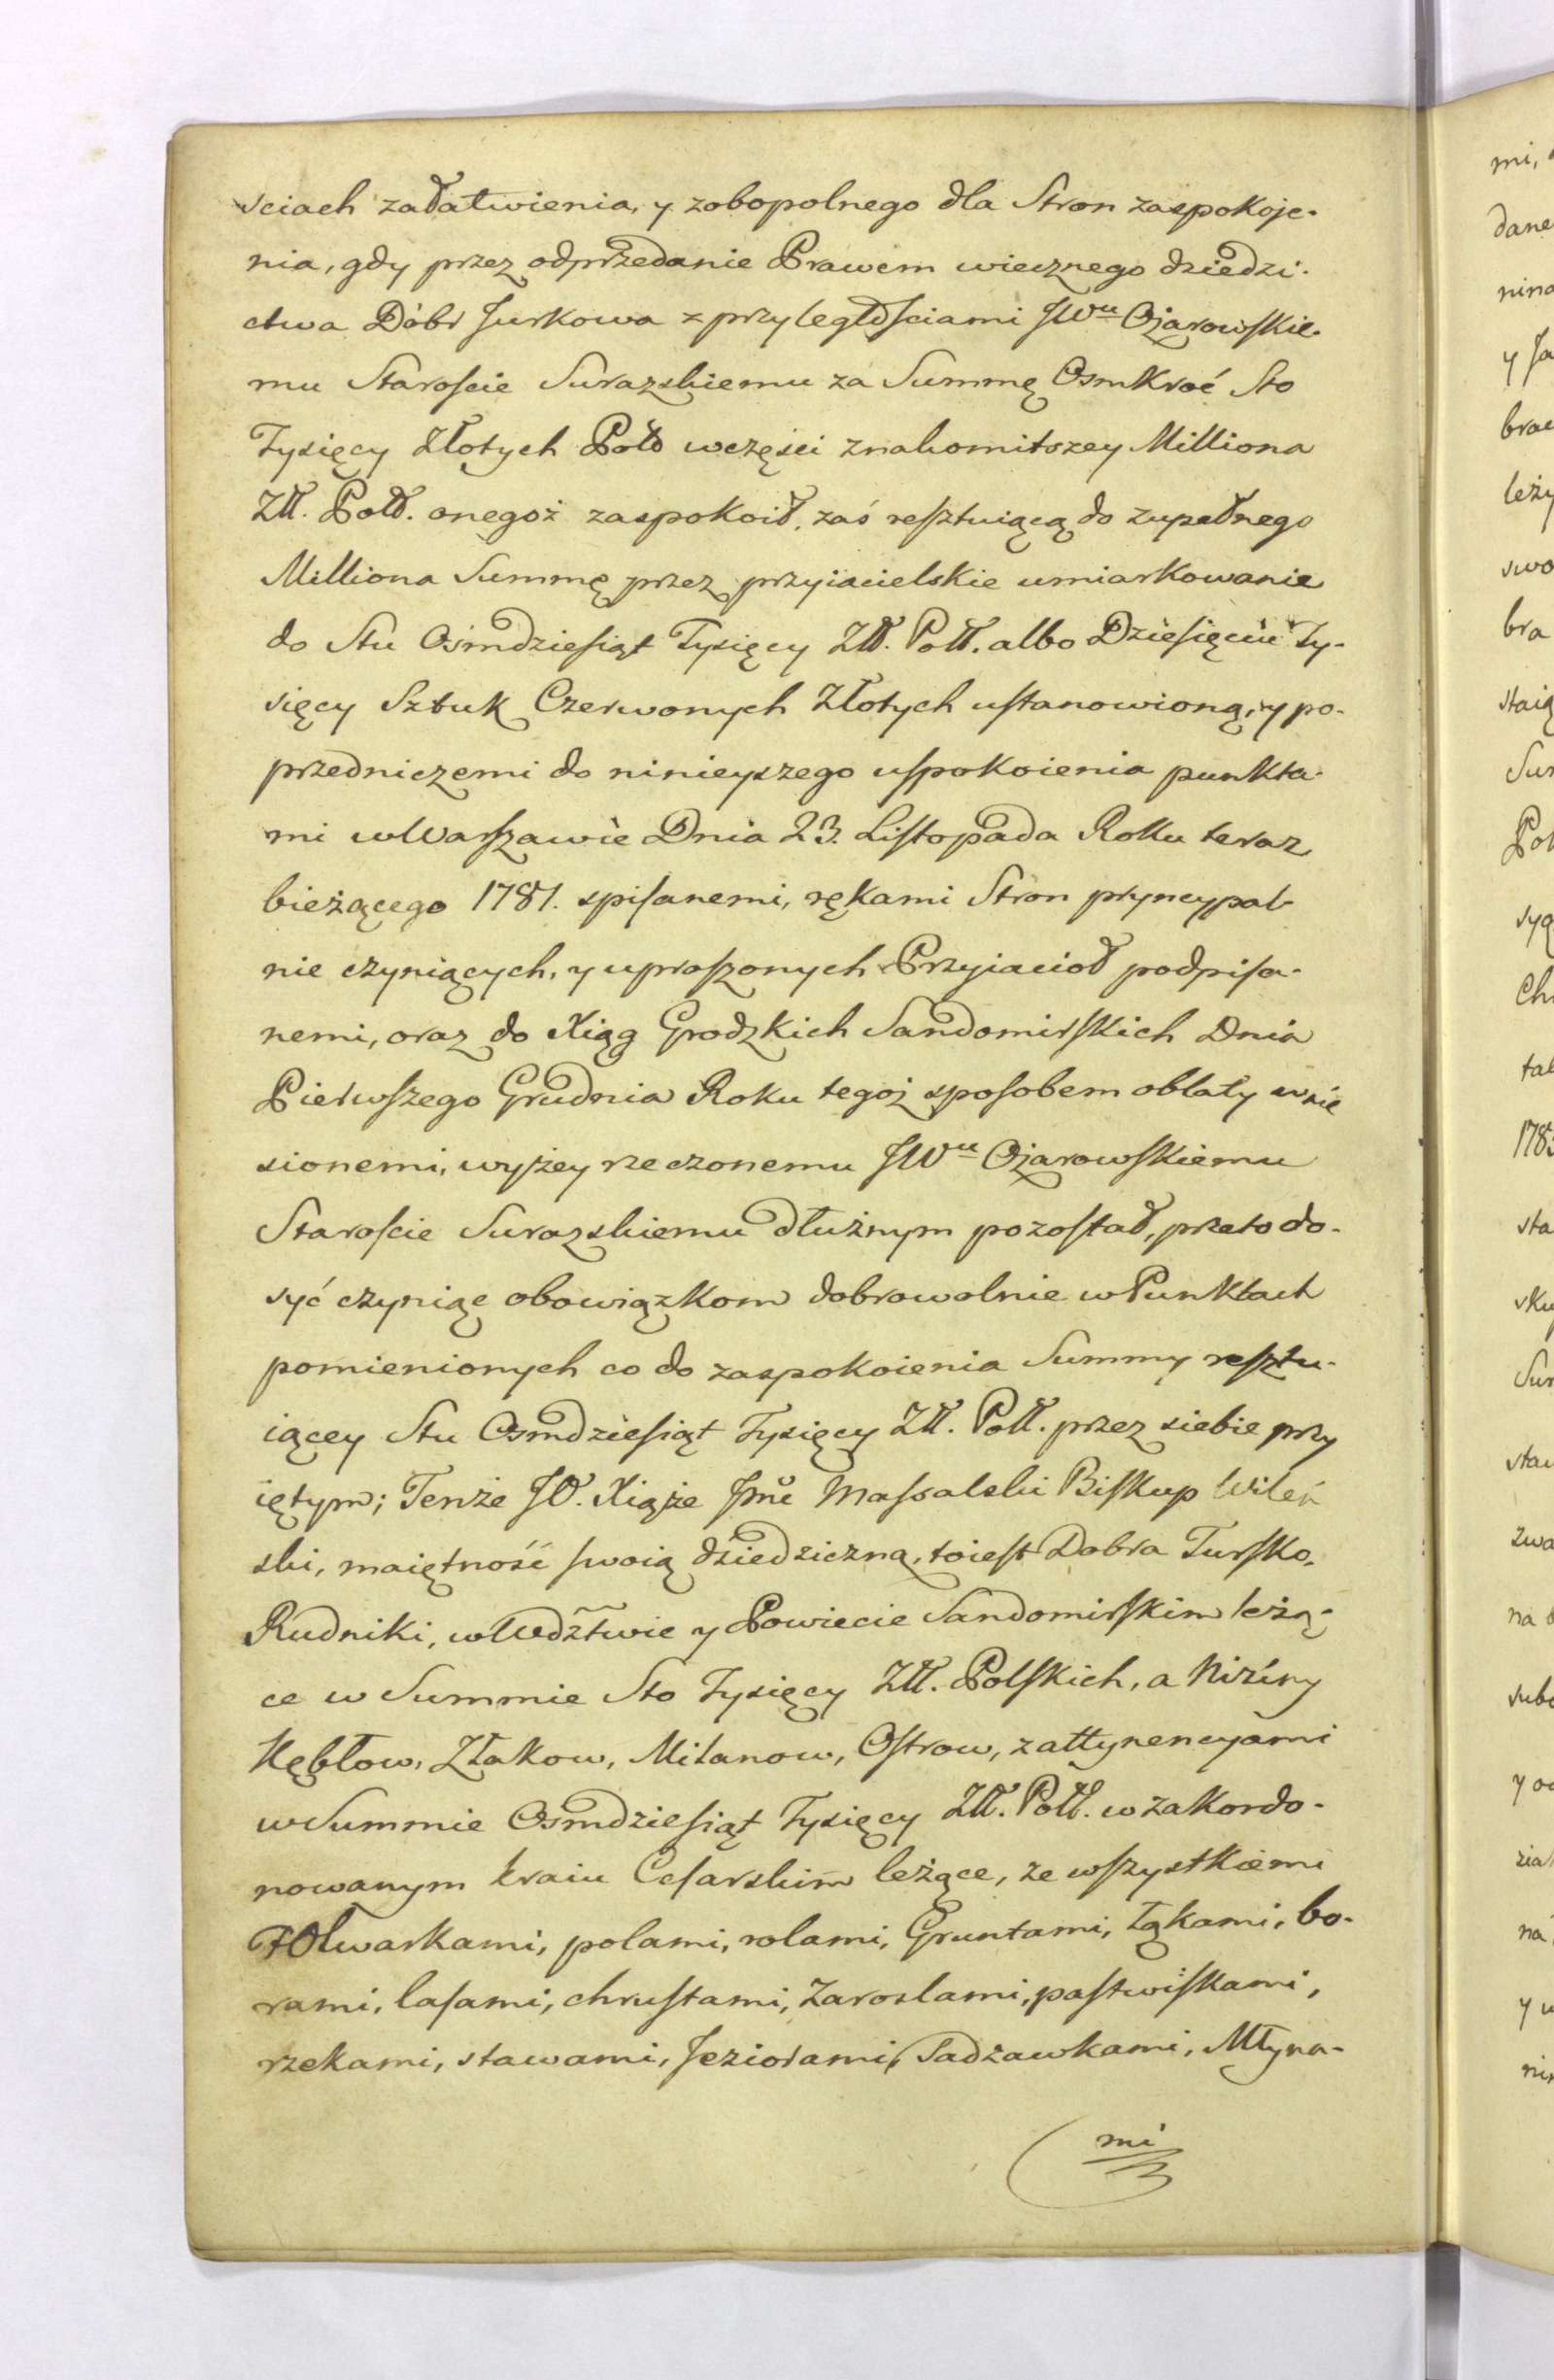 sciach załatwienia, y zobopolnego dla Stron zaspokoje-
nia, gdy przez odprzedanie Prawem wiecznego dziedzi-
ctwa Dóbr Jurkowa z przyległościami JWu Ożarowskie-
mu Staroście Surazskiemu za Summę Osmkroć Sto
Tysięcy Złotych Pol wczęści znakomitszey Milliona
Złł. Poll. onegoż zaspokoił, zaś resztuiącą do zupełnego
Milliona Summę przez przyiacielskie umiarkowanie
do Stu Ośmdziesiąt Tysięcy Złł. Poll. albo Dziesięciu Ty-
sięcy Sztuk Czerwonych Złotych ustanowioną, y po-
przedniczemi do ninieyszego uspokoienia punkta-
mi w Warszawie Dnia 23. Listopada Roku teraz
bieżącego 1781. spisanemi, rękami Stron pryncypal-
nie czyniących, y uproszonych Przyiacioł podpisa-
nemi, oraz do Xiąg Grodzkich Sandomirskich Dnia
Pierwszego Grudnia Roku tegoż sposobem oblaty wnie
sionemi, wyżey rzeczonemu JWu Ożarowskiemu
Staroście Surazskiemu dłużnym pozostał, przeto do-
syć czyniąc obowiązkom dobrowolnie w Punktach
pomienionych co do zaspokoienia Summy resztu-
iącey Stu Osmdziesiąt Tysięcy Złł. Poll. przez siebie przy
iętym; Tenże JO. Xiąże Jmć Massalski Biskup Wileń
ski, maiętność swoią dziedziczną, toiest Dobra Tursko,
Rudniki, w Wdztwie y Powiecie Sandomirskim leżą-
ce w Summie Sto Tysięcy Złł. Polskich, a Niziny
Kębłow, Złakow, Milanow, Ostrow, z attynencyami
w Summie Osmdziesiąt Tysięcy Złł. Poll. w zakordo-
nowanym kraiu Cesarskim leżące, ze wszystkiemi
Folwarkami, polami, rolami, Gruntami, łąkami, bo-
rami, lasami, chrustami, zaroslami, pastwiskami,
rzekami, stawami, Jeziorami, Sadzawkami, Młyna-
mi
mi,
dane
y
bra
swo
bra
staią
Sta